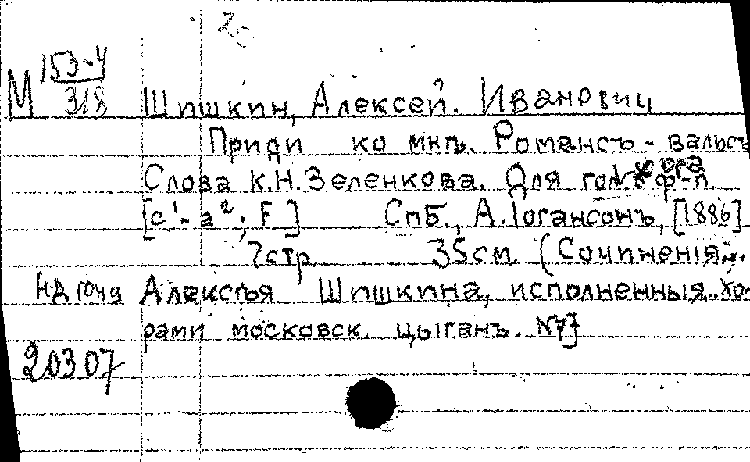 М 153-4
318
Шишкин, Алексей. Иванович
Приди ко мнѣ. Романсъ - вальсъ
Слова К.Н. Зеленкова. Для гол. ф-п
[c¹- a²; F] СПБ., А. Іогансонъ, [1886]
7 стр 35 см (Сочиненія..
Алексѣя Шишкина, исполненныя.. хо-
рами московск. цыганъ. №7]
20307